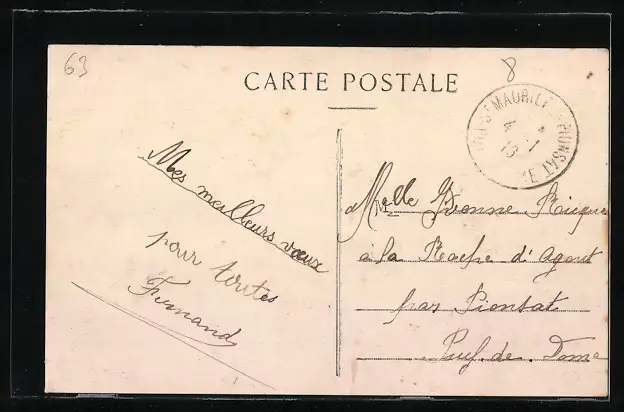 63
8
CARTE POSTALE
ST MAURICE
4 - 1
13
Mes meilleurs vœux
pour toutes
Fernand
Melle Yvonne
à la Roche d'Agout
par Pionsat
Puy. de. Dome